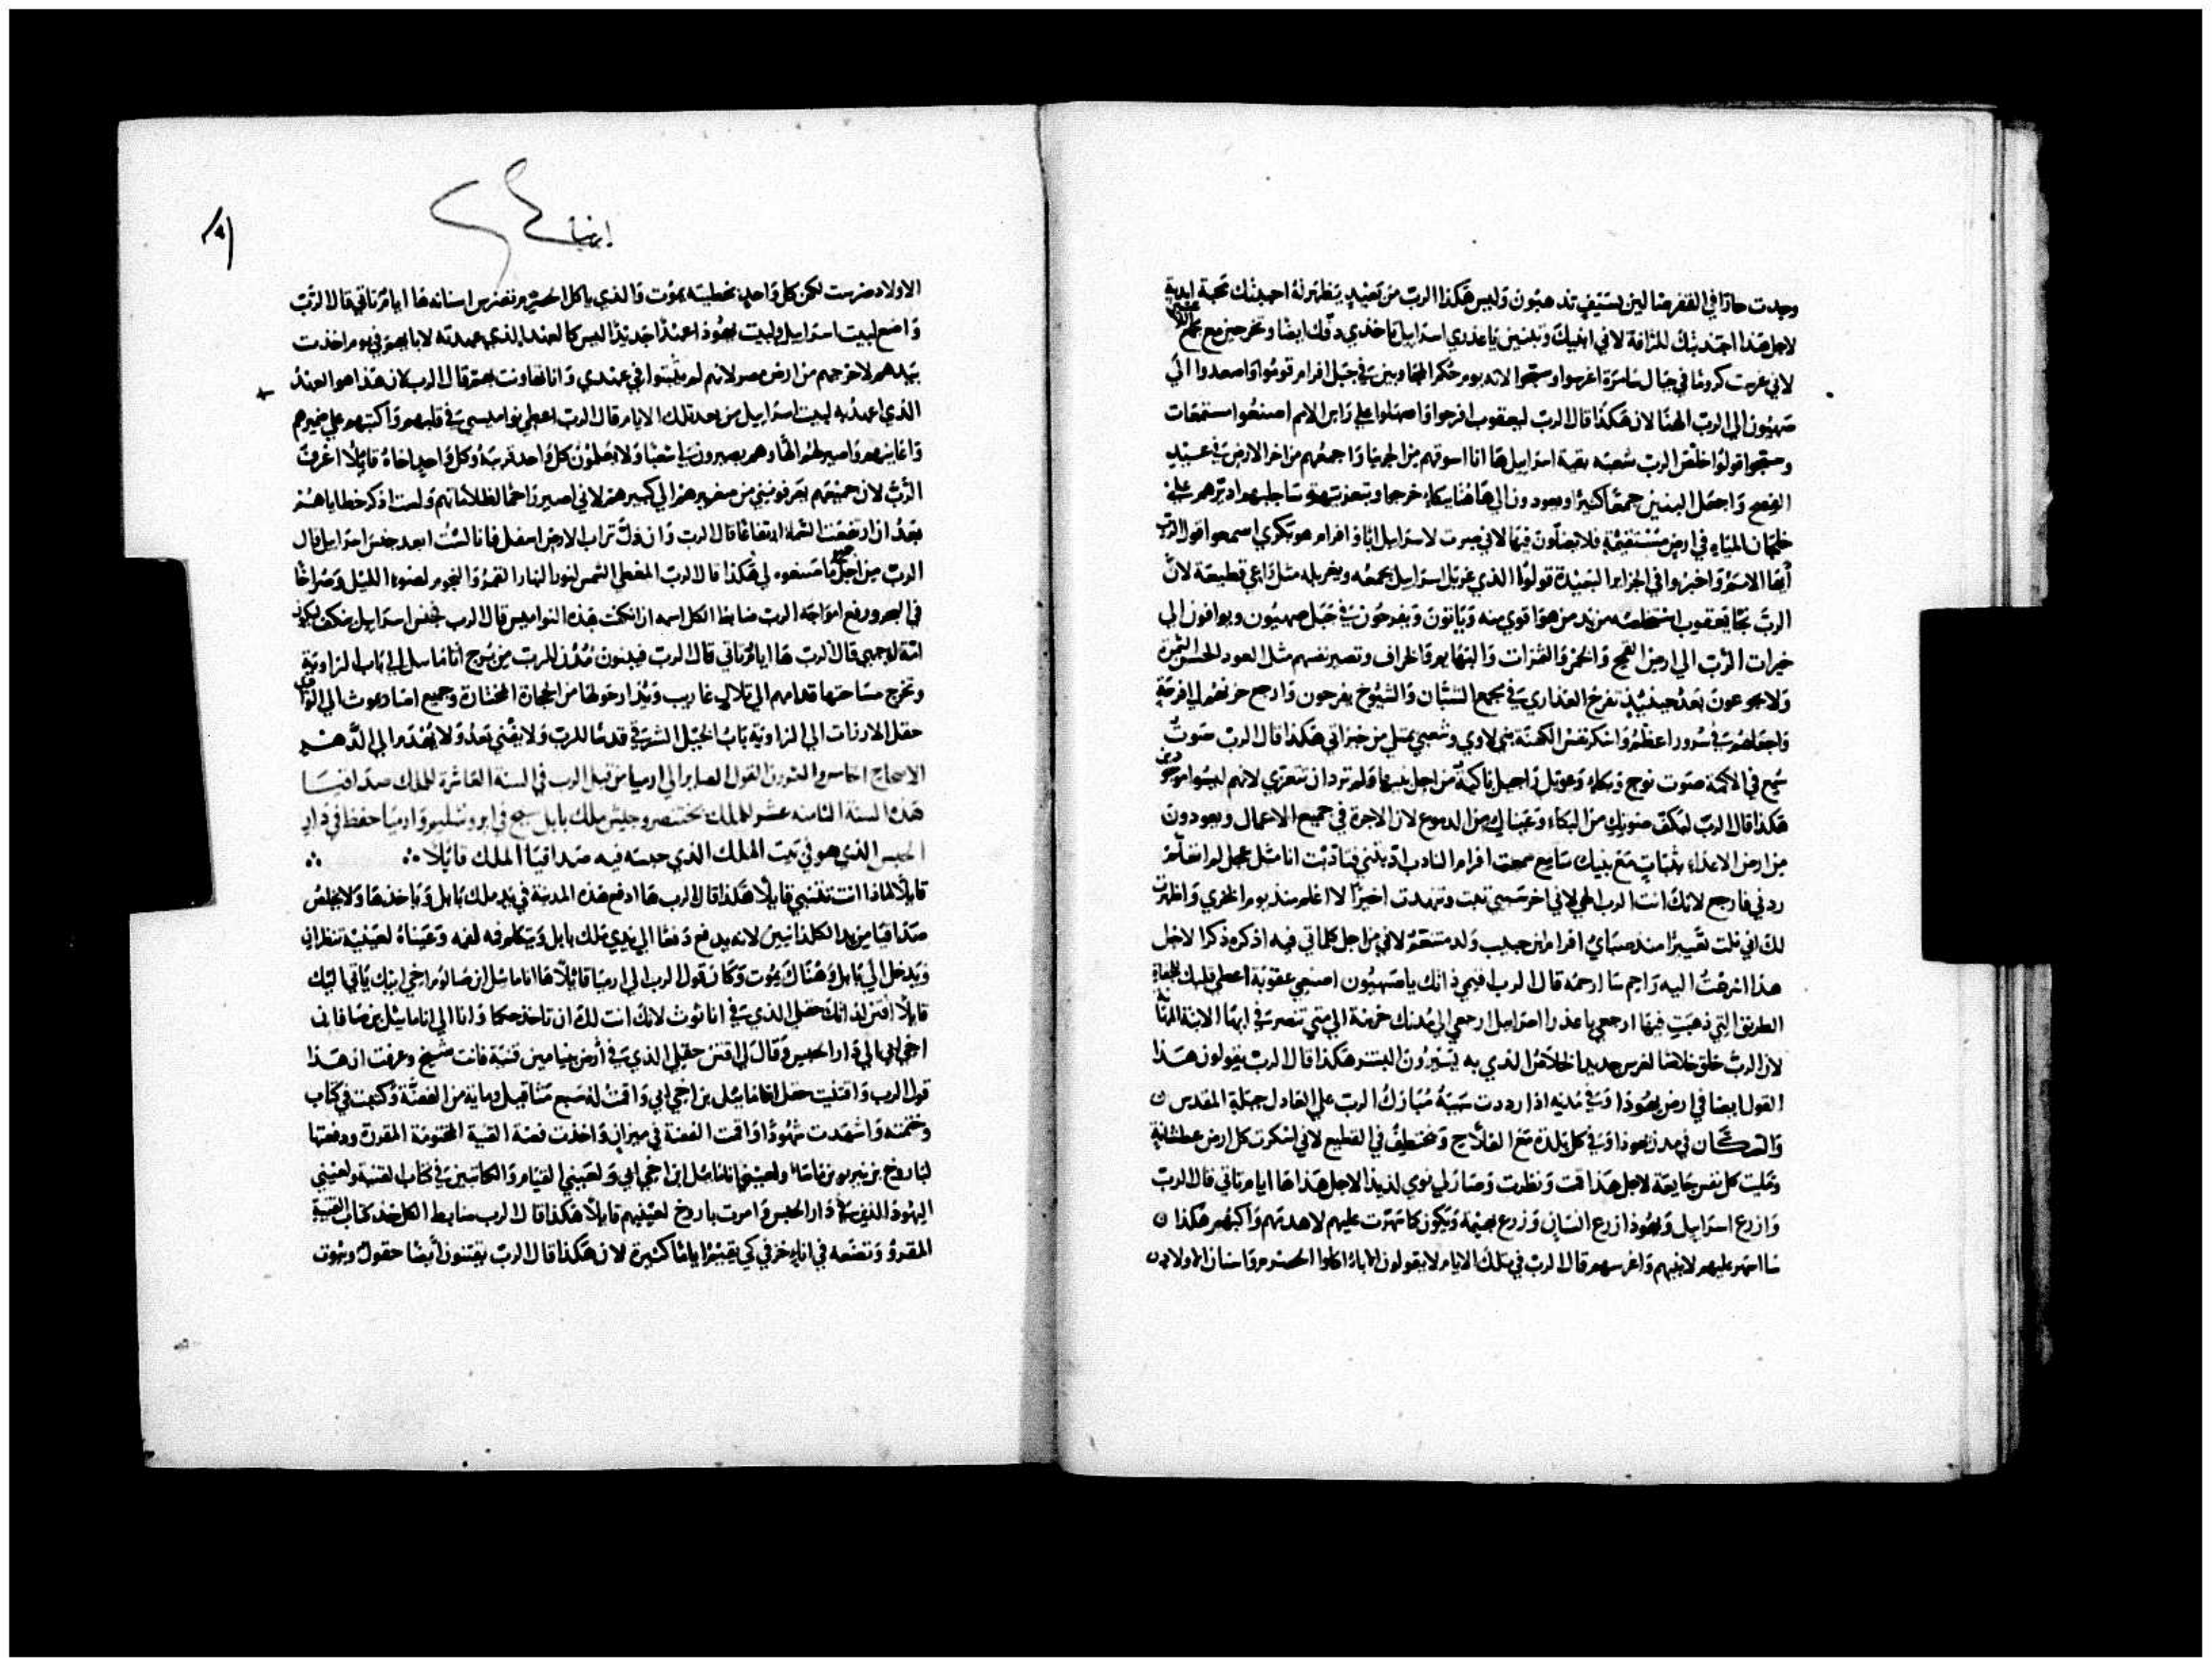 وجدت حارا في القفر ضالين بسيف تذهبون وليس هكذا الرب من بعيد يظهر له احببتك محبة ابدية
لاجل هذا اجتذبتك للرافة لاني ابنيك وتبنين يا عذري اسراييل تاخذي دفك ايضا وتخرجين مع مجمع
لاني غرست كروما في جبال سامرة اغرسوا وسبحوا لانه يوم في جبل افرام قوموا واصعدوا الي
صهيون الي الرب الهنا لان هكذا قال الرب ليعقوب افرحوا واصهلوا علي راس الامم اصنعوا مستمعات
وسبحوا قولوا خلص الرب شعبه بقية اسراييل ها انا اسوقهم من الجربيا واجمعهم من اخر الارض في عيد
الفصح واجعل البنين جمعا كثيرا ويعودون الي هاهنا ببكاء خرجوا وبتعزية ساجلبهم علي
خلجان المياه في ارض مستقيمة فلا يضلون فيها لاني صرت لاسراييل ابا وافرام هو بكري اسمعوا اقوال الرب
ايها الامم واخبروا في الجزاير البعيدة قولوا الذي غربل اسراييل يجمعه ويغربله مثل راعي قطيعه لان
الرب نجا يعقوب استخلصه من يد من هو اقوي منه وياتون ويفرحون في جبل صهيون ويوافون الي
خيرات الرب الي ارض القمح والخمر والثمرات والبهايم والخراف وتصير نفسهم مثل العود الحسن الثمرة
ولا يجوعون بعد حينيذ تفرح العذاري في مجمع الشبان والشيوخ يفرحون وارجع حزنهم الي فرحة
واجعلهم في سرور اعظم واسكر نفس الكهنة بني لاوي وشعبي يمتلي من خيراتي هكذا قال الرب صوت
سمع في الاكمة صوت نوح وبكاء وعويل راحيل باكية من اجل بنيها ولم ترد ان تتعزي لانهم ليسوا موجودين
هكذا قال الرب ليكف صوتك من البكاء وعيناك من الدموع لان الاجرة في جميع الاعمال ويعودون
من ارض الاعداء بثبات مع بنيك سامع سمعت افرام النادب ادبتني فتادبت انا مثل عجل لم اتعلم
ردني فارجع لانك انت الرب الهي لاني اخر سبيي تبت وتنهدت اخيرا لا اعلم منذ يوم الخزي واظهرت
لك اني نلت تعييرا منذ صباي افرام ابن حبيب ولد متنعم لاني من اجل كلماتي فيه اذكره ذكرا لاجل
هذا اسرعت اليه راحم سارحمه قال الرب اقيمي ذاتك يا صهيون اصنعي عقوبة اعطي قلبك
الطريق التي ذهبت فيها ارجعي يا عذرا اسراييل ارجعي الي مدنك حزينة الي متي تنصرفي ايها الابنة المهانة
لان الرب خلق خلاصا لغرس جديد الخلاص الذي به يسيرون البشر هكذا قال الرب يقولون هذا
القول ايضا في ارض يهوذا وفي مدنه اذا رددت سبيه مبارك الرب علي العادل جبله المقدس
والسكان في مدن يهوذا وفي كل بلدة مع الفلاح ومختطف في القطيع لاني اسكرت كل ارض عطشانة
وملات كل نفس جايعة لاجل هذا قمت ونظرت وصار لي نومي لذيذا لاجل هذا ها ايام تاتي قال الرب
وازرع اسراييل ويهوذا زرع انسان وزرع بهيمة ويكون كما سهرت عليهم لاهدمهم هكذا
سااسهر عليهم لابنيهم واغرسهم قال الرب في تلك الايام لا يقولون الاباء اكلوا الحصرم واسنان الاولاد
١٨١
ارميا
الاولاد ضرست لكن كل واحد بخطيته يموت والذي ياكل الحصرم تضرس اسنانه ها ايام تاتي قال الرب
واضع لبيت اسراييل ولبيت يهوذا عهدا جديدا ليس كالعهد الذي عهدته لابايهم في يوم اخذت
بيدهم لاخرجهم من ارض مصر لانهم لم يثبتوا في عهدي وانا تهاونت بهم قال الرب لان هذا هو العهد
الذي اعهد به لبيت اسراييل من بعد تلك الايام قال الرب اعطي نواميسي في قلبهم واكتبهم علي ضميرهم
واعاينهم واصير لهم الها وهم يصيرون لي شعبا ولا يعلمون كل واحد قريبه وكل واحد اخاه قايلا اعرف
الرب لان جميعهم يعرفونني من صغيرهم الي كبيرهم لاني اصير راحما لظلاماتهم ولست اذكر خطاياهم
بعد ان ارتفعت السماء ارتفاعا قال الرب وان ذلك تراب الارض اسفل فانا لست ابعد جنس اسراييل قال
الرب من اجل جميع ما صنعوه لي هكذا قال الرب المعطي الشمس لنور النهار القمر والنجوم لضوء الليل وصراخا
في البحر ورفع امواجه الرب ضابط الكل اسمه ان كفت هذه النواميس قال الرب فجنس اسراييل يكف يكون
امة لوجهي قال الرب ها ايام تاتي قال الرب فيبنون مدن للرب من برج انامايل الي باب الزاوية
وتخرج مساحتها قدامهم الي تلال غاريب وتدار حولها من الحجارة المختارة وجميع اصاريموث الي الوادي
حقل الارنات الي الزاوية باب الخيل الشرقي قدسا للرب ولا يفني بعد ولا يهدم الي الدهر
الاصحاح الخامس والعشرون القول الصاير الي ارميا من قبل الرب في السنة العاشرة للملك صداقيا
هذه السنة الثامنة عشر للملك بختنصر وجيش ملك بابل سيج في ايروشليم وارميا حفظ في دار
الحبس الذي هو في بيت الملك الذي حبسه فيه صداقيا الملك قايلا
قايلا لماذا انت تتنبي قايلا هكذا قال الرب ها ادفع هذه المدينة في يد ملك بابل وياخذها ولا يخلص
صداقيا من يد الكلدانيين لانه يدفع دفعا الي يدي ملك بابل ويتكلم فمه لفمه وعيناه لعينيه تنظران
ويدخل الي بابل وهناك يموت وكان قول الرب الي ارميا قايلا ها انامايل ابن صالوم اخي ابيك ياتي اليك
قايلا اقتن لذاتك حقلي الذي في اناثوث لانك انت لك ان تاخذ حكما واتا الي انامايل بن صالوم
اخي ابي الي دار الحبس وقال لي اقتن حقلي الذي في ارض بنيامين قنية فانت شيخ وعرفت ان هذا
قول الرب واقتنيت حقل انامايل بن اخي ابي واقمت له سبع مثاقيل وماية من الفضة وكتبت في كتاب
وختمته واشهدت شهودا واقمت الفضة في ميزان واخذت فضة القنية المختومة المقروة ودفعتها
لباروخ بن نيريو بن ماسا ولعيني انامايل ابن اخي ابي ولعيني القيام والكاتبين في كتاب القنية ولعيني
اليهود الذين في دار الحبس وامرت باروخ لعينيهم قايلا هكذا قال الرب ضابط الكل خذ كتاب القنية
المقرو وتضعه في اناء خزفي كي يقيم اياما كثيرة لان هكذا قال الرب يقتنون ايضا حقول وبيوت